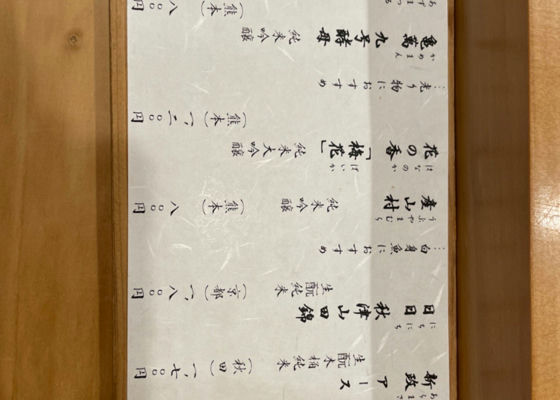 あらまさ
新政 アース
生酛木桶純米
（秋田） 一、七〇〇円
にちにち
日日 秋津山田錦
生酛純米
（京都） 一、八〇〇円
⋮白身魚におすすめ
うぶやまむら
産山村 純米吟醸
（熊本） 八〇〇円
はなのか ばいか
花の香「梅花」
純米大吟醸
（熊本） 一、二〇〇円
⋮光り物におすすめ
かめまん
亀萬 九号酵母
純米吟醸
（熊本） 八〇〇円